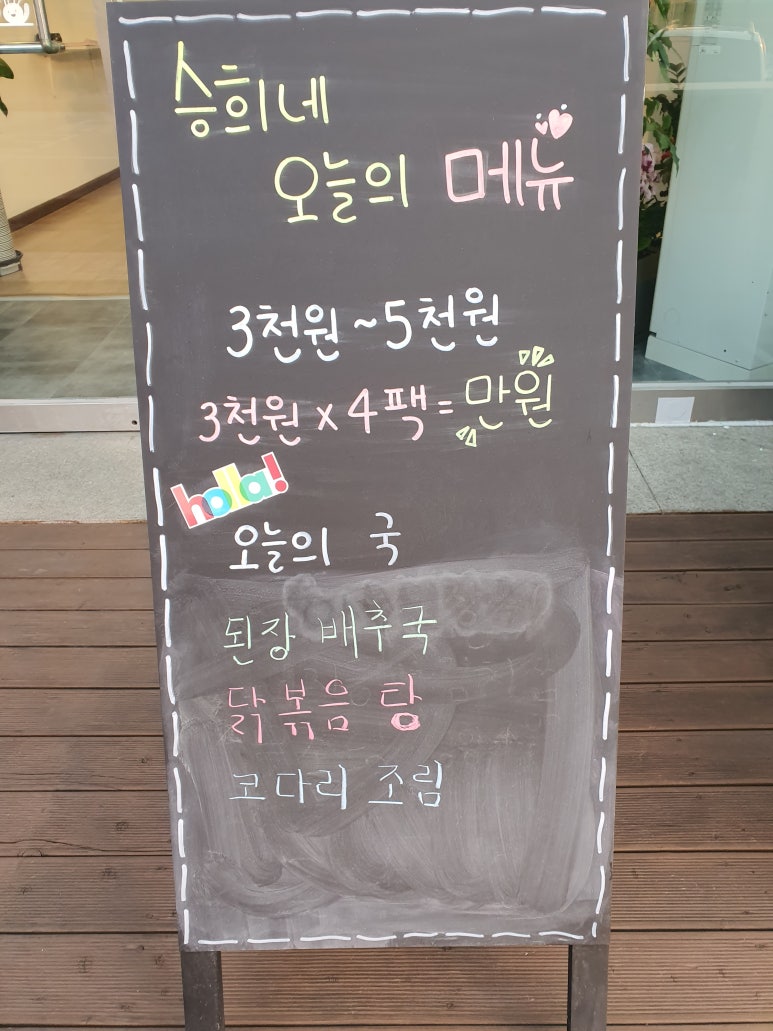 승희네
오늘의 메뉴
3천원~5천원
3천원 x 4팩 = 만원
holla!
오늘의 국
된장 배추국
닭볶음 탕
코다리 조림